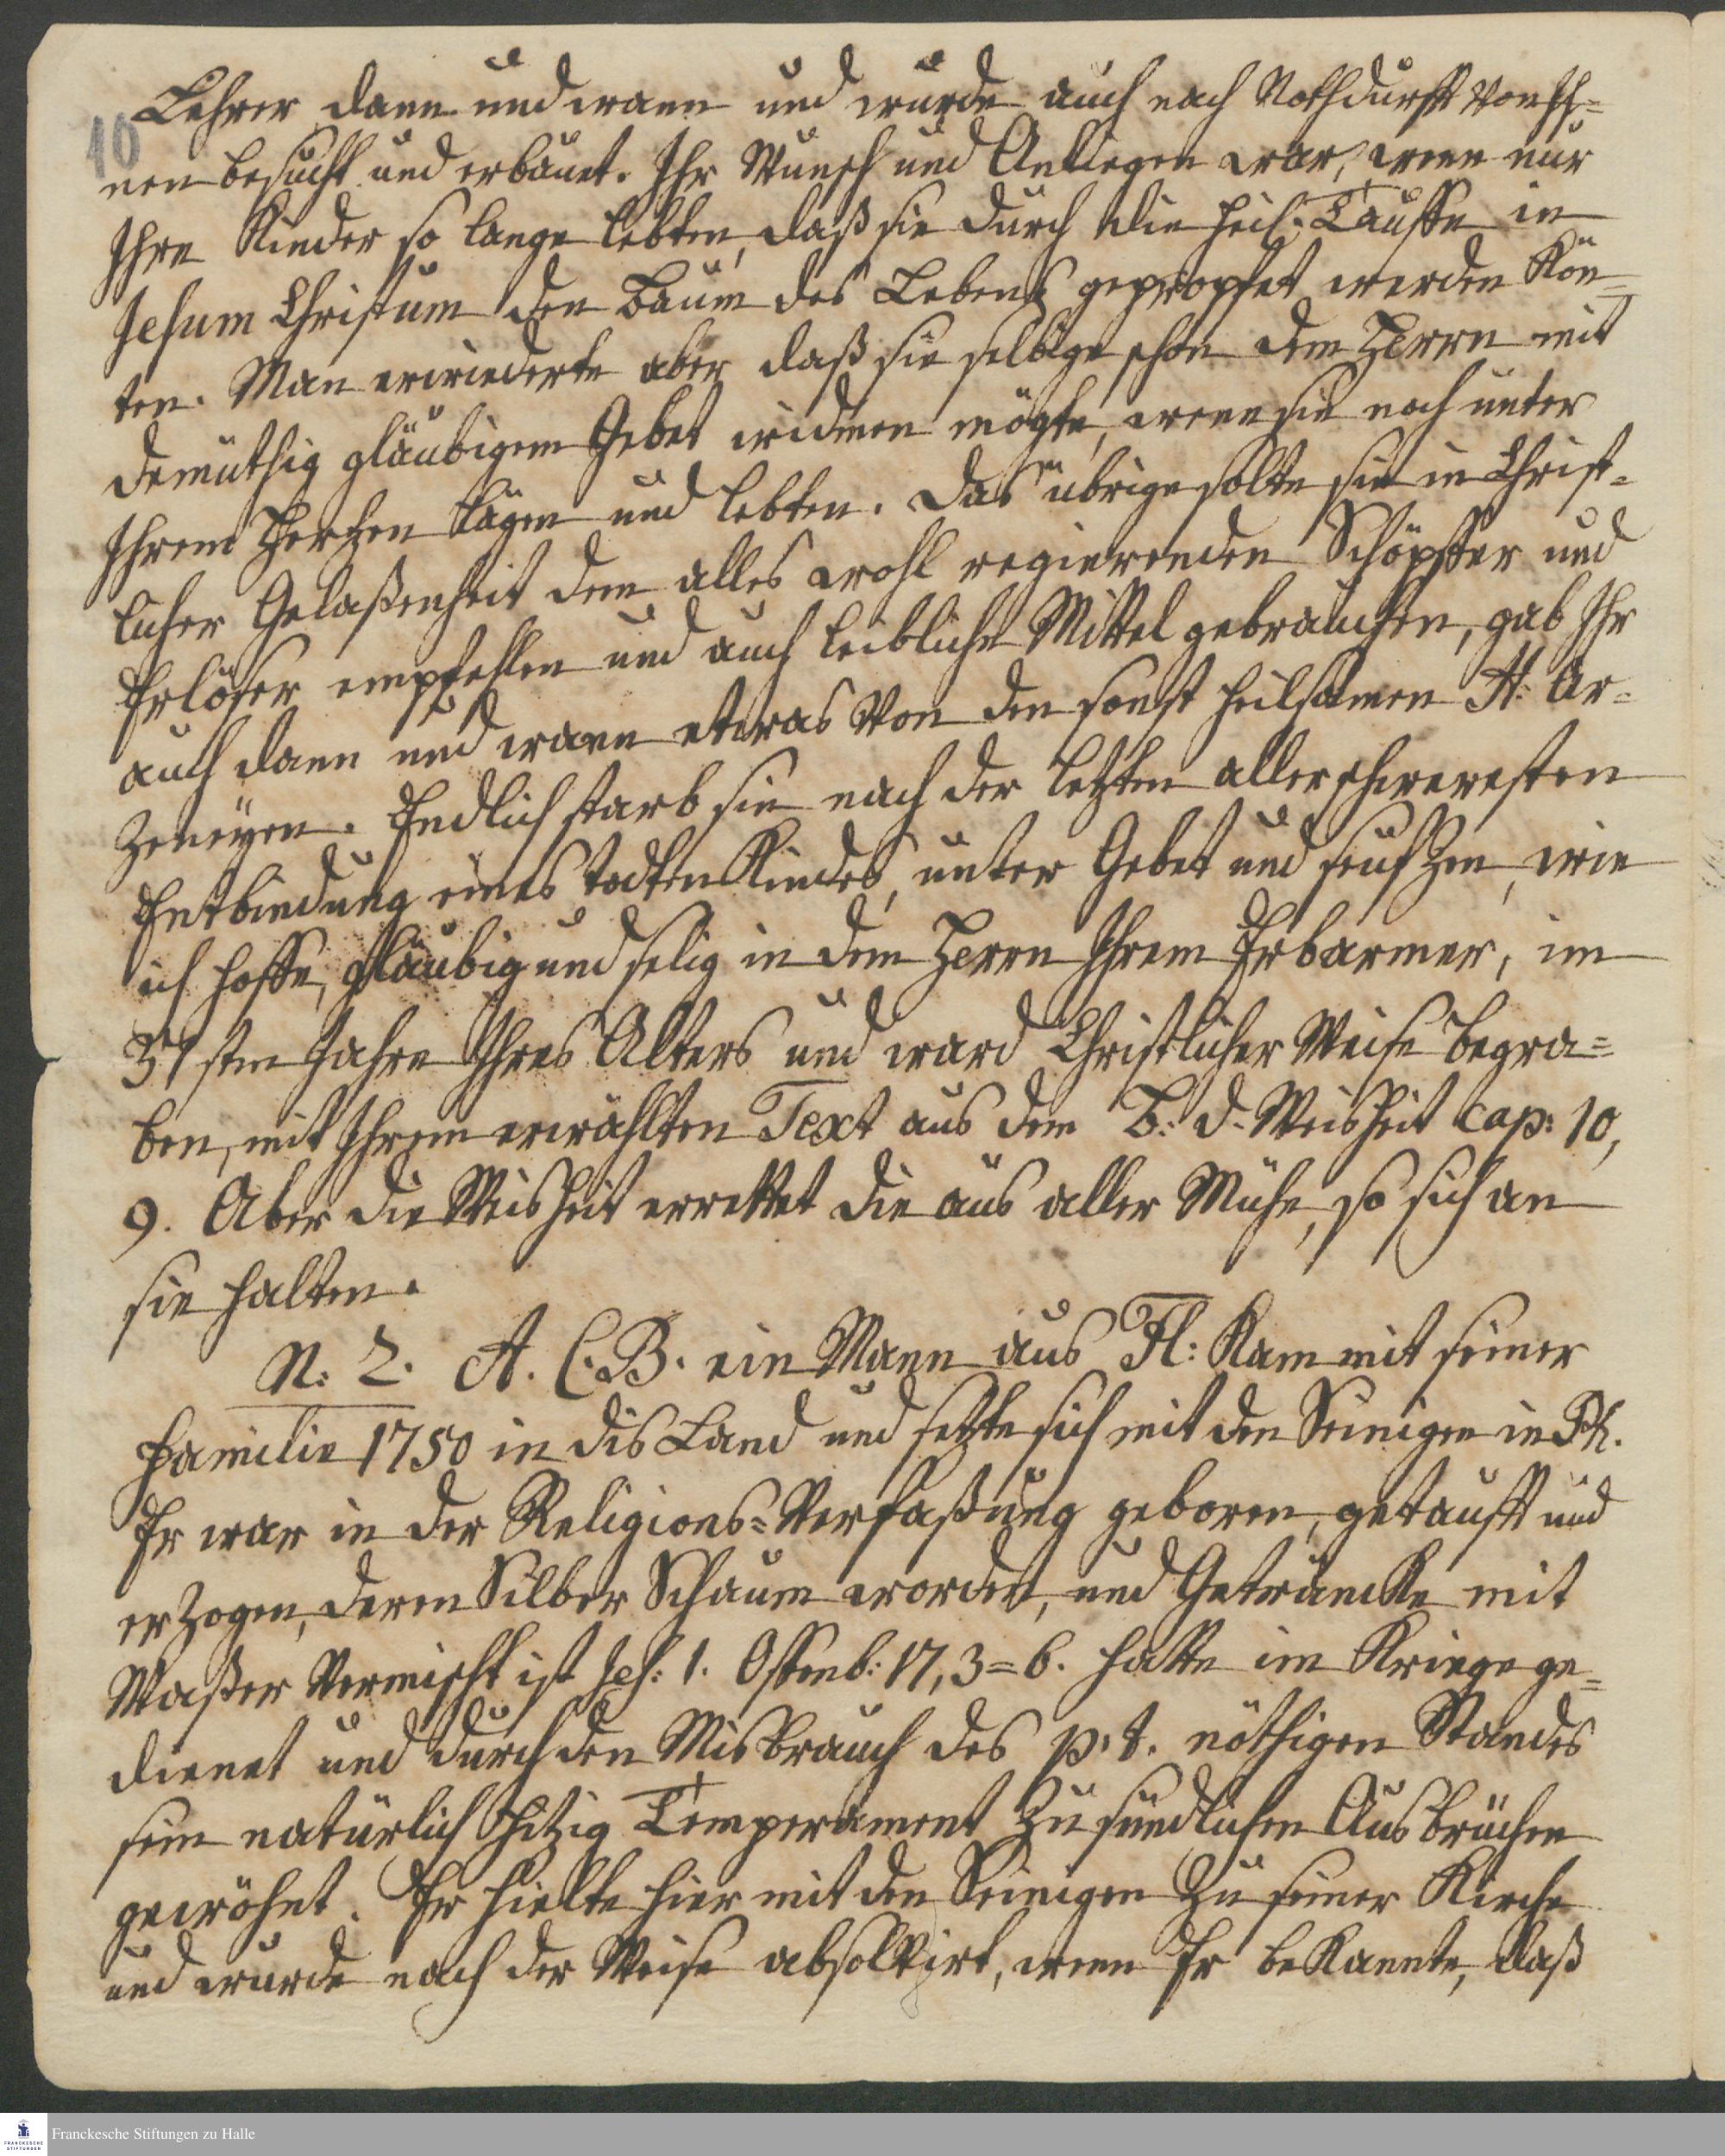 10
Lehrer dann und wann und wurde auch nach Nothdurfft von Ih=
nen besucht und erbauet. Ihr Wunsch und Anliegen war, wenn nur
Ihre Kinder so lange lebten, daß sie durch die heil: Tauffe in
Jesum Christum den Baum des Lebens gepropfet werden kön=
ten. Man erwiederte aber daß sie selbige schon dem Herrn mit
demüthig gläubigem Gebet widmen mögte, wenn sie noch unter
Ihrem Hertzen lägen und lebten. Das übrige solte sie in Christ=
licher Gelaßenheit dem alles wohl regierenden Schöpffer und
Erlöser empfehlen und auch leibliche Mittel gebrauchen, gab Ihr
auch dann und wann etwas von den sonst heilsamen H. Ar=
zeneyen. Endlich starb sie nach der letzten allerschweresten
Entbindung eines todten Kindes, unter Gebet und seufzen, wie
ich hoffe, gläubig und selig in dem Herrn Ihrem Erbarmer, im
37sten Jahre Ihres Alters und ward Christlicher Weise begra=
ben, mit Ihrem erwählten Text aus dem B: d. Weisheit Cap: 10,
9. Aber die Weisheit errettet die aus aller Mühe, so sich an
sie halten.
N: 2. A. C. B. ein Mann aus Fl: kam mit seiner
Familie 1750 in dis Land und setzte sich mit den Seinigen in Ph.
Er war in der Religions=Verfaßung geboren, getaufft und
erzogen, deren Silber Schaum worden, und Geträncke mit
Waßer vermischt ist Jes: 1. Offenb: 17, 3=6. hatte im Kriege ge=
dienet und durch den Misbrauch des p. t. nöthigen Standes
sein natürlich hitzig Temperament zu sündlichen Ausbrüchen
gewöhnt. Er hielte hier mit den Seinigen zu seiner Kirche
und wurde nach der Weise absolvirt, wenn Er bekannte, daß
Franckesche Stiftungen zu Halle
FRANCKESCHE
STIFTUNGEN